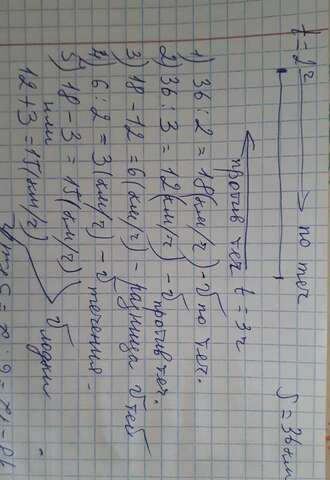 t = 2ч по теч S = 36 км
против теч t = 3ч
1) 36 : 2 = 18 (км/ч) - v по теч.
2) 36 : 3 = 12 (км/ч) - v против теч.
3) 18 - 12 = 6 (км/ч) - разница v тей
4) 6 : 2 = 3 (км/ч) - v течения.
5) 18 - 3 = 15 (км/ч)
или v лодки
12 + 3 = 15 (км/ч)